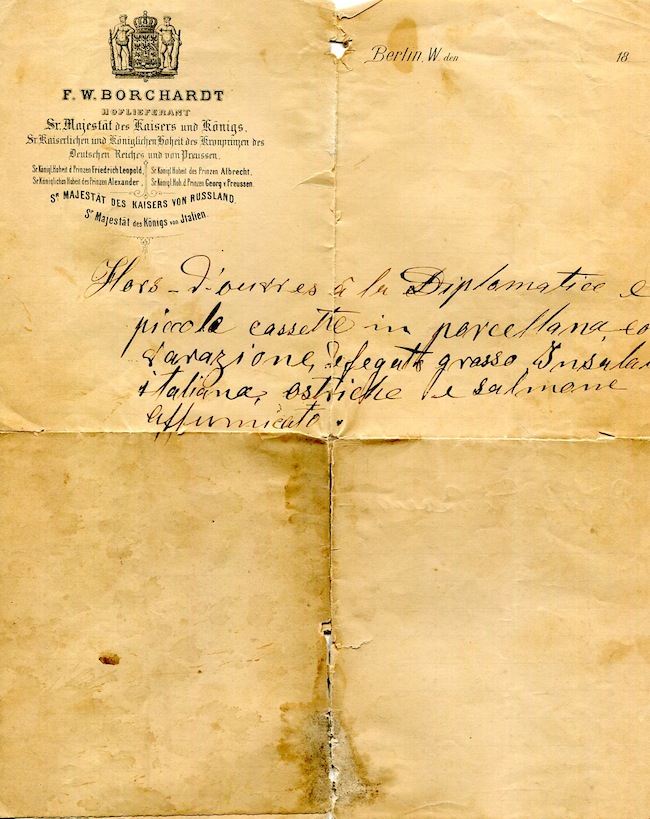 Berlin, W. den 18
F. W. BORCHARDT
HOFLIEFERANT
Sr. Majestät des Kaisers und Königs.
Sr. Kaiserlichen und Königlichen Hoheit des Kronprinzen des
Deutschen Reiches und von Preussen.
Sr. Königl. Hoheit d. Prinzen Friedrich Leopold, Sr. Königl. Hoheit des Prinzen Albrecht,
Sr. Königlichen Hoheit des Prinzen Alexander, Sr. Königl. Hoh. d. Prinzen Georg v. Preussen.
Sr MAJESTÄT DES KAISERS VON RUSSLAND,
Sr Majestät des Königs von Jtalien.
Hors-d'ouvres à la Diplomatice e
piccole cassette in porcellana, co
fegato grasso, Insala
italiana, ostriche e salmone
affumicato.